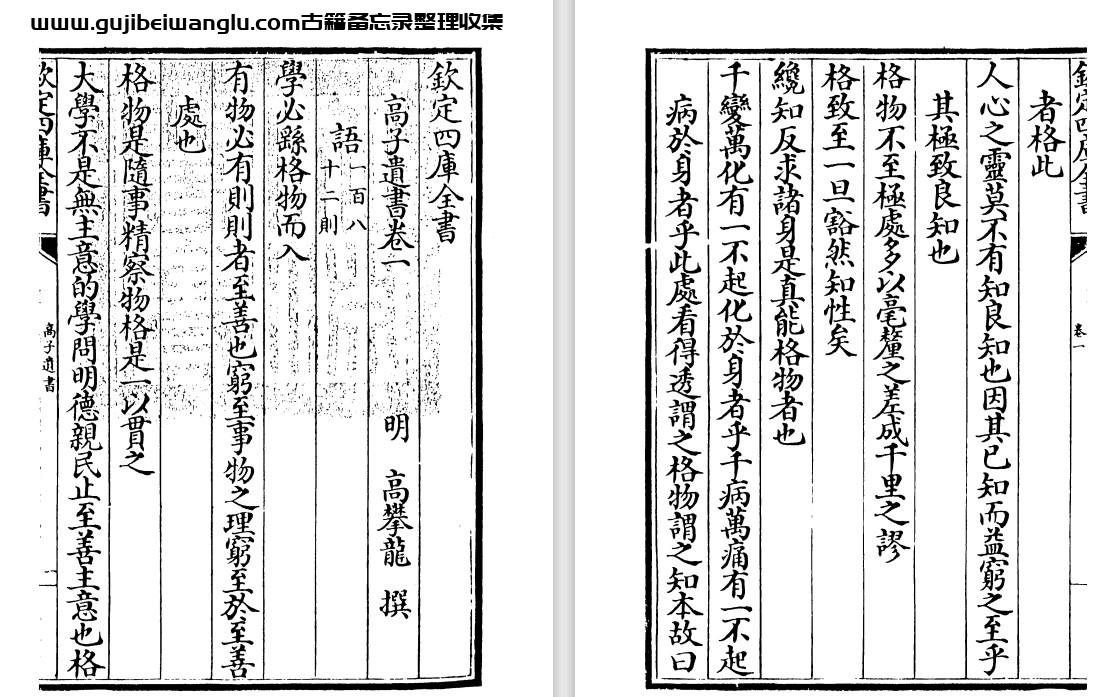 www.gujibeiwanglu.com古籍备忘录整理收集
欽定四庫全書
高子遺書卷一 明 高攀龍 撰
語 一百八十二則
學必繇格物而入
有物必有則則者至善也窮至事物之理窮至於至善
處也
格物是隨事精察物格是一以貫之
大學不是無主意的學問明德親民止至善主意也格
欽定四庫全書 高子遺書 一
欽定四庫全書 卷一
者格此
人心之靈莫不有知良知也因其已知而益窮之至乎
其極致良知也
格物不至極處多以毫釐之差成千里之謬
格致至一旦豁然知性矣
纔知反求諸身是真能格物者也
千變萬化有一不起化於身者乎千病萬痛有一不起
病於身者乎此處看得透謂之格物謂之知本故曰